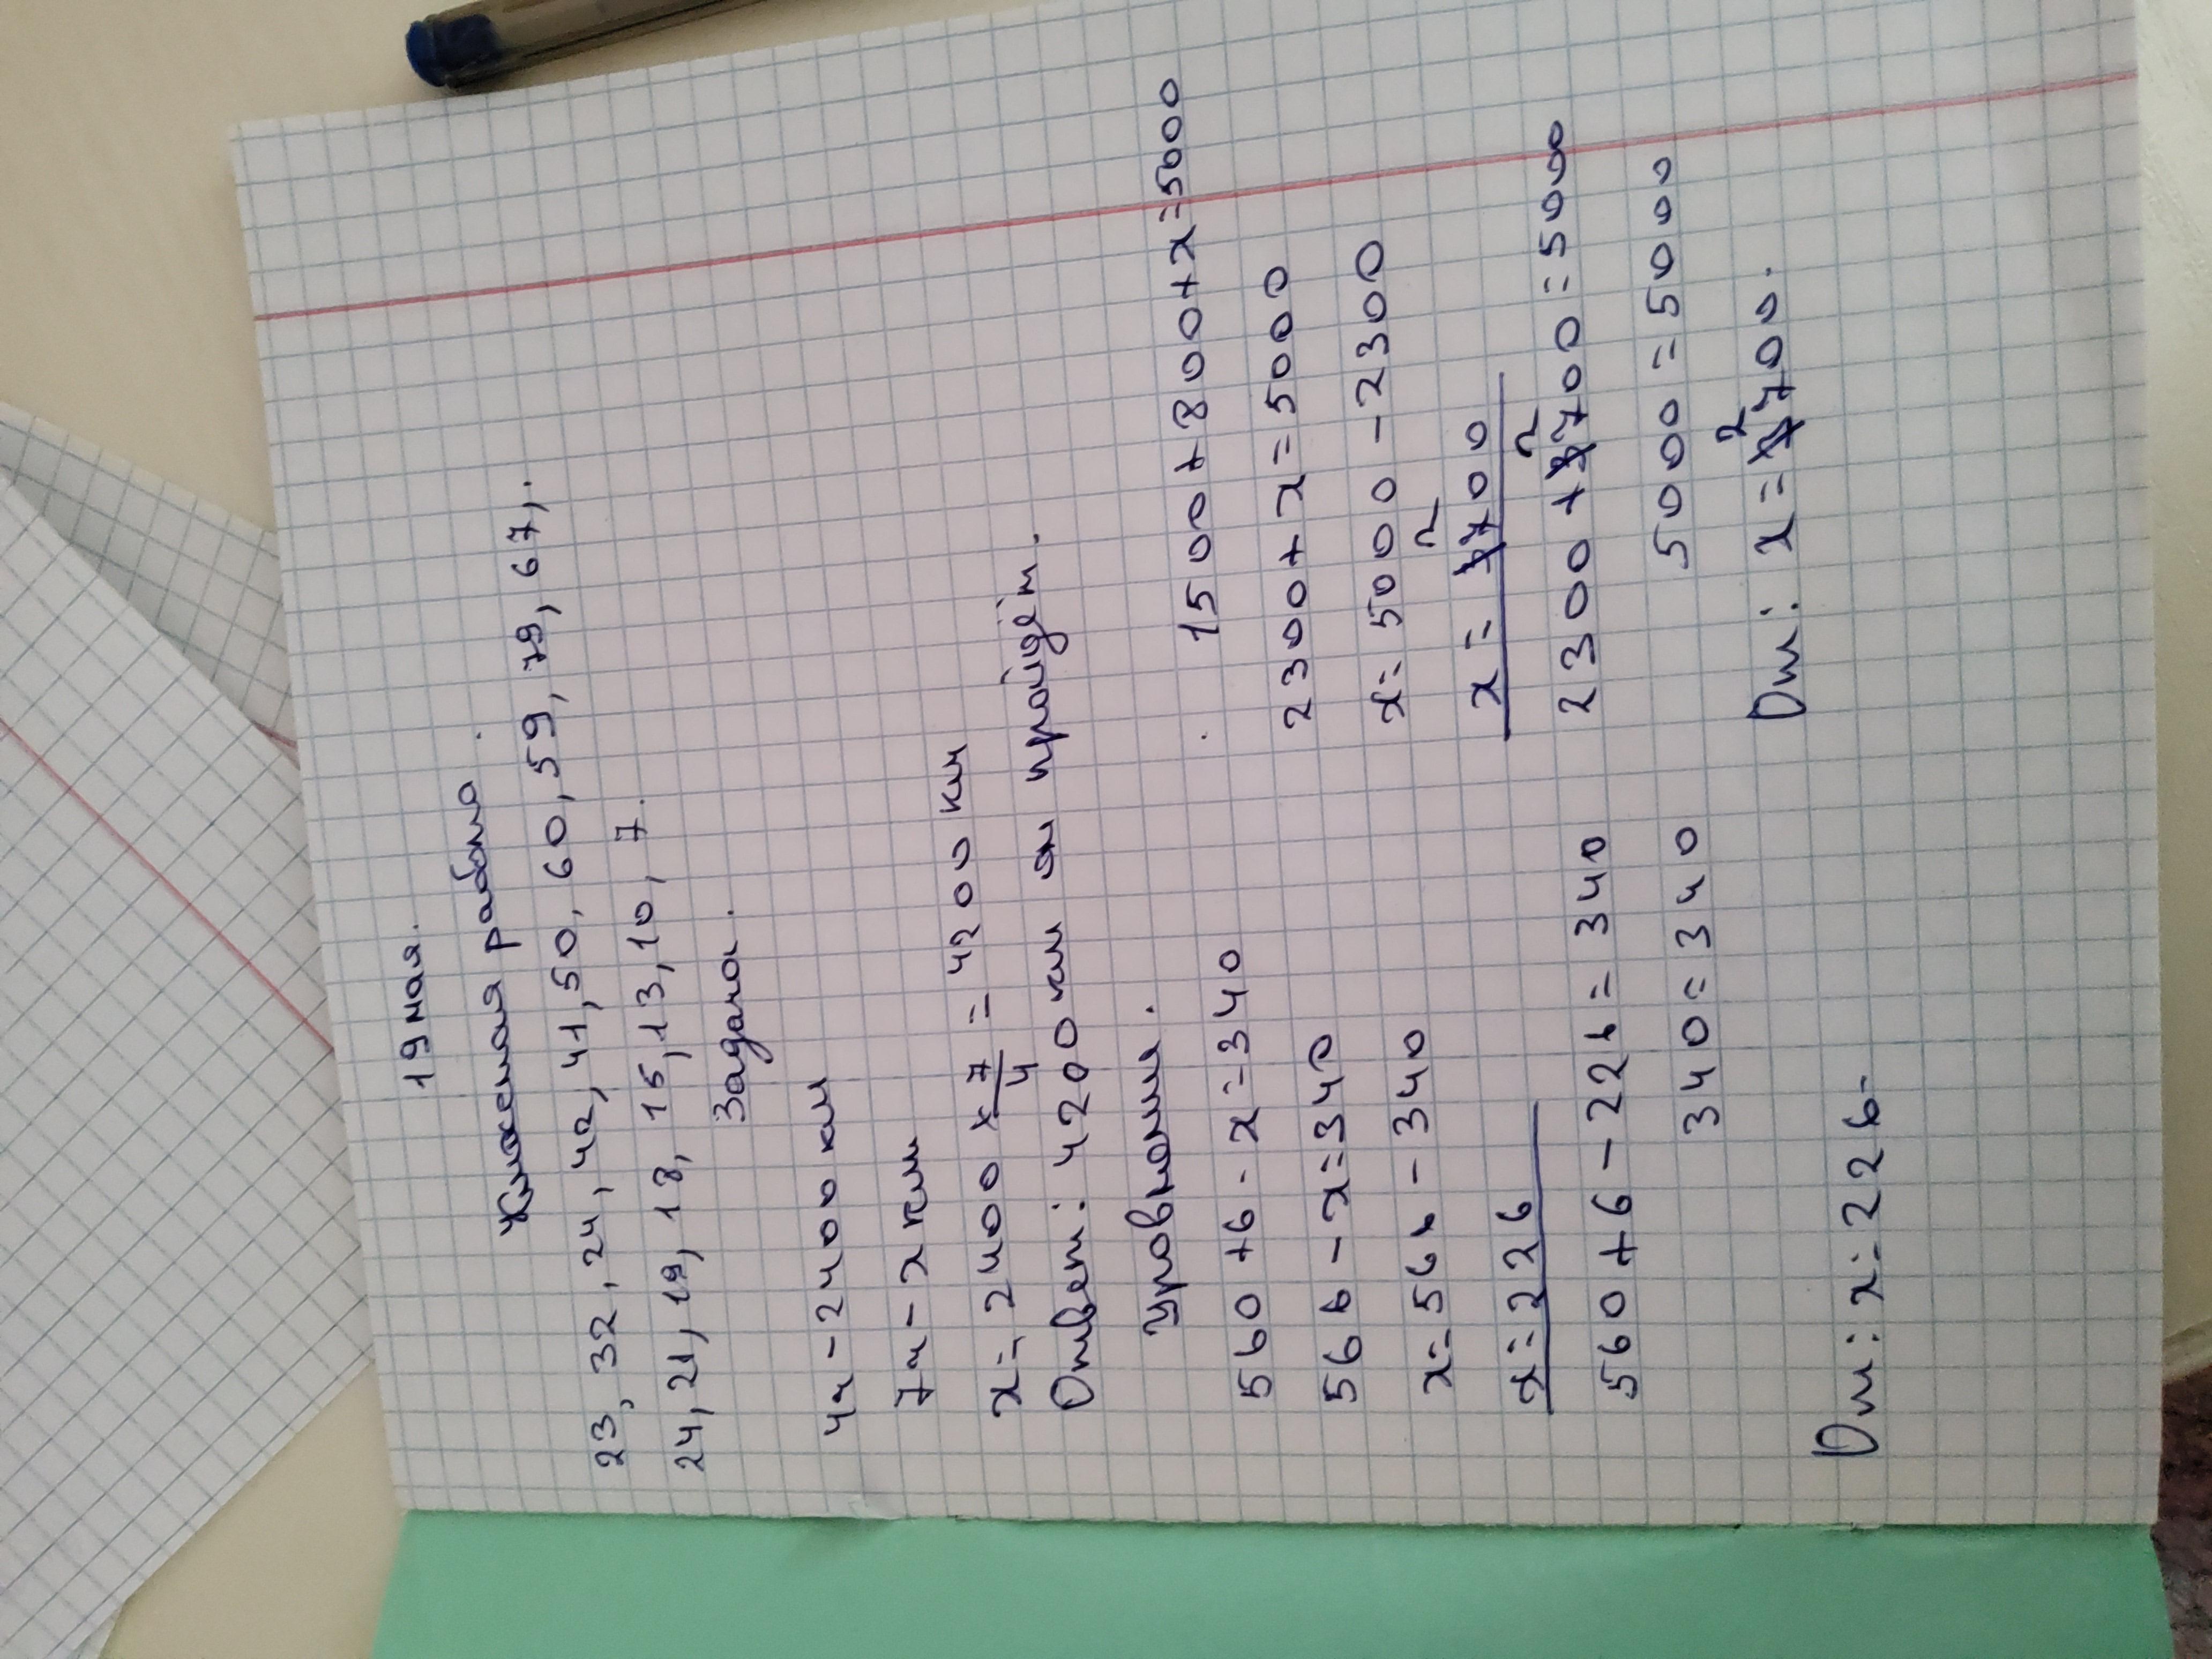 19 мая.
Классная работа.
23, 32, 24, 42, 41, 50, 60, 59, 79, 67,.
24, 21, 19, 18, 15, 13, 10, 7.
Задача.
4ч - 2400 км
7ч - x км
x = 2400 x 7/4 = 4200 км
Ответ: 4200 км он пройдём.
Уравнения.
560 + 6 - x = 340
566 - x = 340
x = 566 - 340
x = 226
560 + 6 - 226 = 340
340 = 340
От: x = 226.
1500 + 800 + x = 5000
2300 + x = 5000
x = 5000 - 2300
x = 2700
2300 + 2700 = 5000
5000 = 5000
От: x = 2700.